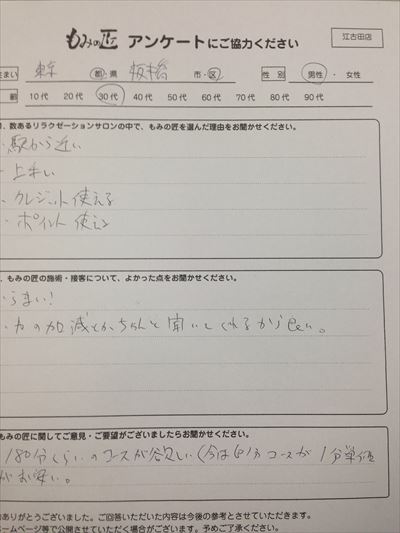 もみの匠 アンケートにご協力ください
江古田店
住まい 東京 都・県 板橋 市・区 性別 男性・女性
齢 10代 20代 30代 40代 50代 60代 70代 80代 90代
1、数あるリラクゼーションサロンの中で、もみの匠を選んだ理由をお聞かせください。
・駅から近い
・上手い
・クレジット使える
・ポイント使える
、もみの匠の施術・接客について、よかった点をお聞かせください。
・うまい!
・力の加減とか、ちゃんと聞いてくれるから良い。
もみの匠に関してご意見・ご要望がございましたらお聞かせください。
180分くらいのコースが欲しい(今は 分コースが1分単価
がお安い。
ありがとうございました。ご回答いただいた内容は今後の参考とさせていただきます。
ホームページ等で公開させていただく場合がございます。予めご了承ください。